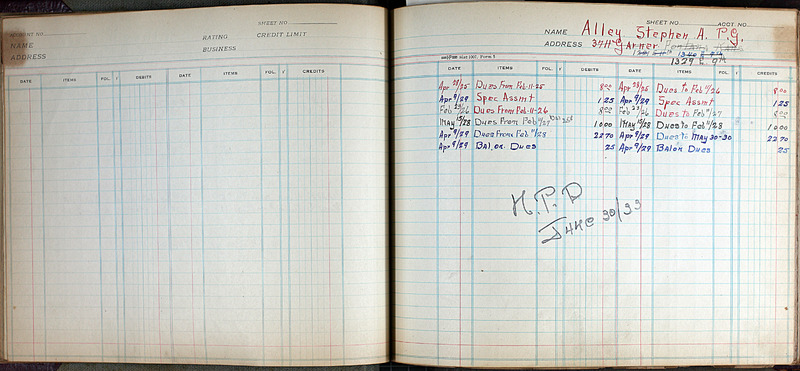 SHEET NO
ACCOUNT NO.
NAME
ADDRESS
RATING
BUSINESS
CREDIT LIMIT
DATE ITEMS FOL. √ DEBITS DATE ITEMS FOL. √ CREDITS
SHEET NO ACCT NO
NAME Alley Stephen A. P.G.
ADDRESS 3711 Garner
1340 E 9th
1329 E. 9th
DATE ITEMS FOL. √ DEBITS DATE ITEMS FOL. √ CREDITS
Apr 28/25 Dues From Feb-11-25 8 00 Apr 28/25 Dues to Feb 11/26 8 00
Apr 9/29 Spec Assmt 1 25 Apr 9/29 Spec Assmt 1 25
Feb 23/26 Dues From Feb-11-26 8 00 Feb 23/26 Dues to Feb 11/27 8 00
May 15/28 Dues From Feb 11/27 10 00 May 15/28 Dues to Feb 11/28 10 00
Apr 9/29 Dues From Feb 11/28 22 70 Apr 9/29 Dues to May 30-30 22 70
Apr 9/29 Bal on Dues 25 Apr 9/29 Bal on Dues 25
N.P.D
June 30/33